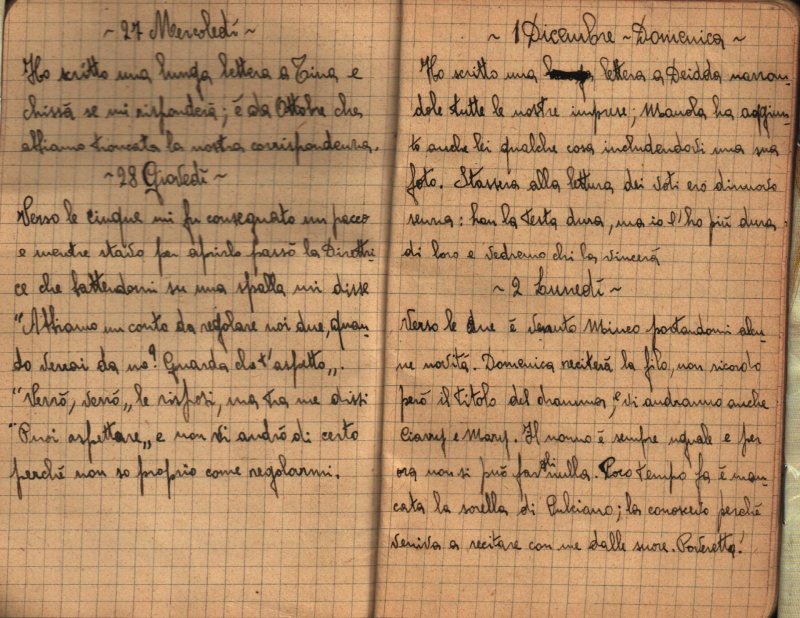 ~ 27 Mercoledí ~
Ho scritto una lunga lettera a Tina e
chissà se mi risponderà; é da Ottobre che
abbiamo troncata la nostra corrispondenza.
~ 28 Giovedí ~
Verso le cinque mi fu consegnato un pacco
e mentre stavo per aprirlo passó la Diretri-
ce che battendomi su una spalla mi disse
"Abbiamo un conto da regolare noi due, quan-
do verrai da me? Guarda che t'aspetto„.
"Verró, verró„ le risposi, ma tra me dissi
"Puoi aspettare„ e non vi andró di certo
perché non so proprio come regolarmi.
~ 1 Dicembre ~ Domenica ~
Ho scritto una lettera a Deidda narran-
dole tutte le nostre imprese; Manola ha aggiun-
to anche lei qualche cosa includendovi una sua
foto. Stassera alla lettura dei voti ero dinuovo
senza: han la testa dura, ma io l'ho piú dura
di loro e vedremo chi la vincerá
~ 2 Lunedí ~
Verso le due é venuto Minco portandomi alcu-
ne novitá. Domenica reciterá la filo, non ricordo
peró il titolo del dramma, e vi andranno anche
Ciarry e Mary. Il nonno é sempre uguale e per
ora non si puó fargli nulla. Poco tempo fa é man-
cata la sorella di Pulciano; la conoscevo perché
veniva a recitare con me dalle suore. Poveretta!